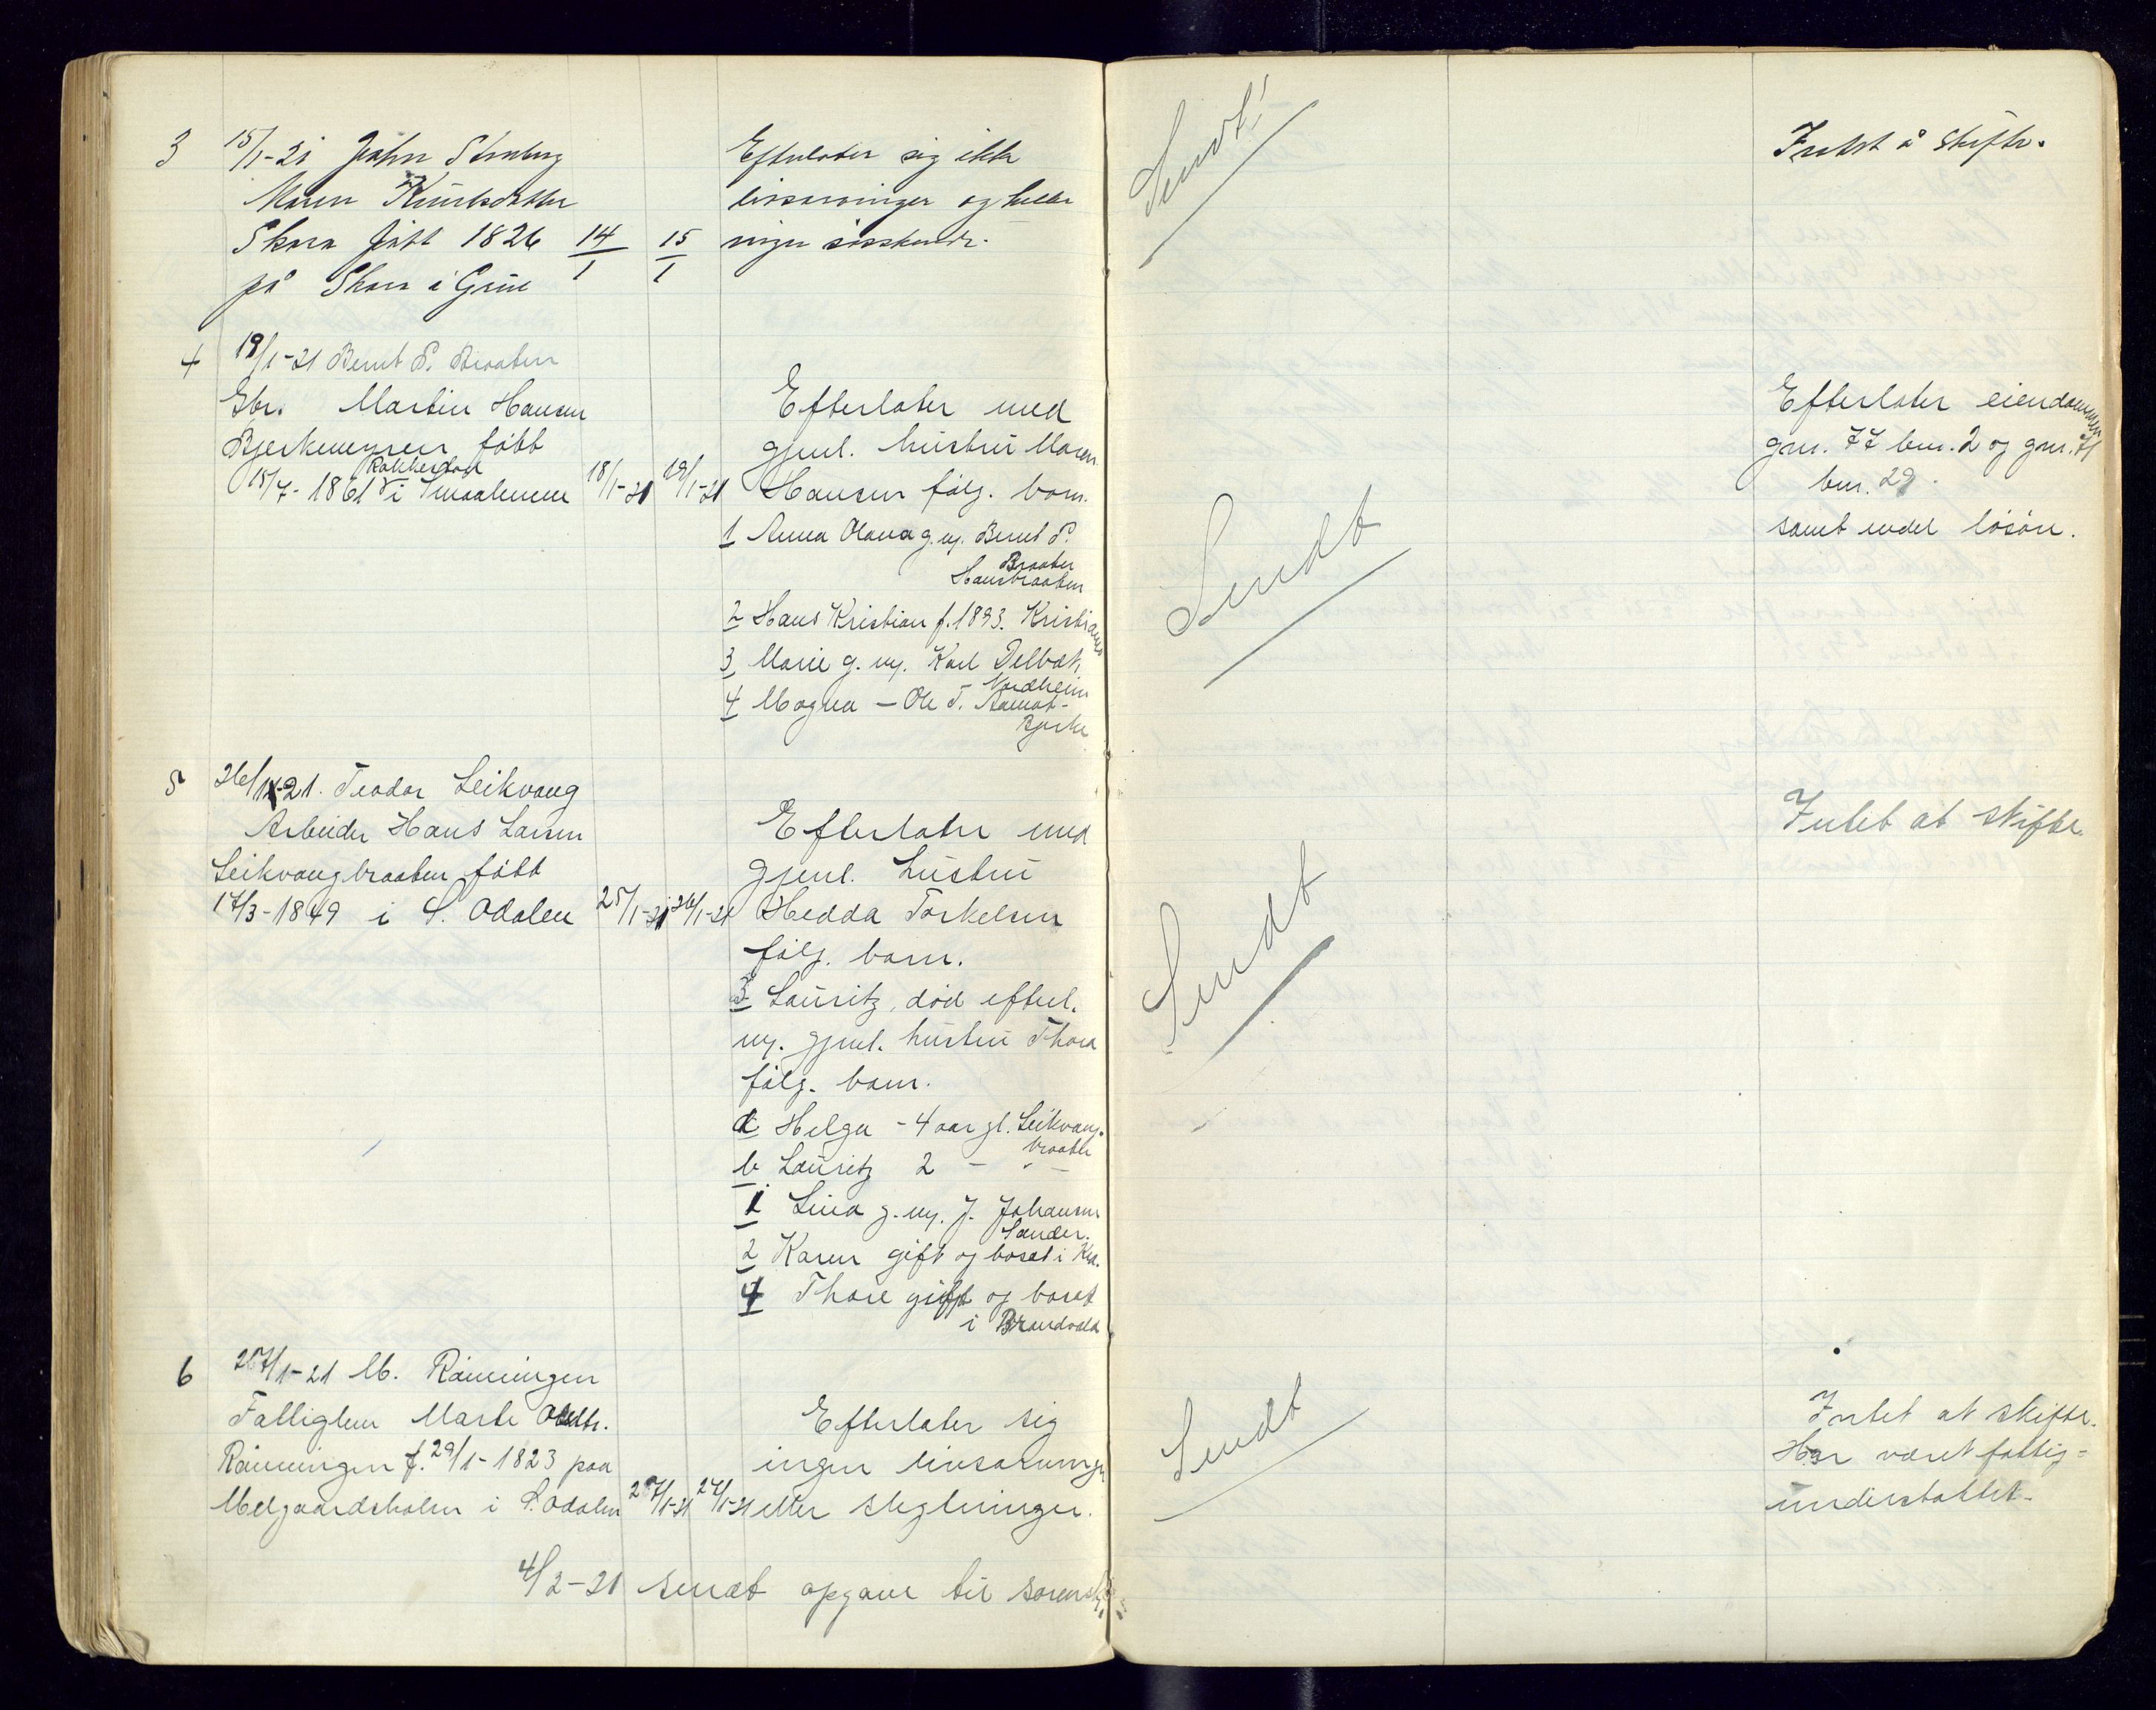 3 15/1-21 John Stenberg
Maren Knutsdatter
Skara født 1826 14/1 15/1
på Skara i Grue
Efterlater sig ikke
livsarvinger og heller
ingen søsskende.
Sendt!
Intet å skifte.
4 19/1-21 Bernt P. Braaten
Gbr. Martin Hansen
Bjerkemyren født
Rakkestad
15/7-1861 i Smaalenene 18/1-21 19/1-21
Efterlater med
gjenl. hustru Maren
Hansen følg. barn.
1 Anna Olava g.m. Bernt P.
Braaten
Hansbraaten
2 Hans Kristian f. 1893. Kristiania
3 Marie g.m. Karl Delbæk,
Nordheim
4 Magna — Ole T.
Bjerke
Sendt
Efterlater eiendommen
gnr. 77 bnr. 2 og gnr. 71
bnr. 29.
samt endel løsøre.
5 26/1-21. Teodor Leikvang
Arbeider Hans Larsen
Leikvangbraaten født
17/3-1849 i S. Odalen 25/1-21 26/1-21
Efterlater med
gjenl. hustru
Hedda Torkelsen
følg. barn.
3 Lauritz, død efterl.
m. gjenl. hustru Thora
følg. barn.
a Helga - 4 aar gl. Leikvang-
braaten
b Lauritz 2 — " —
1 Lina g.m. J. Johansen
Sander.
2 Karen gift og bosat i Kra.
4 Thore gift og bosat
i Brandvold
Sendt
Intet at skifte.
6 27/1-21 M. Rønningen
Fattiglem Marte Olsdtr.
Rønningen f. 29/1-1823 paa
Melgaardsholen i S. Odalen 27/1-21 27/1-21
Efterlater sig
ingen livsarvinger
eller slegtninger.
Sendt
Intet at skifte.
Har været fattig-
understøttet.
4/2-21 sendt opgave til sorenskr.